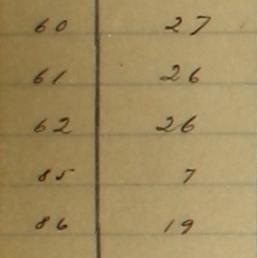 60 27
61 26
62 26
85 7
86 19